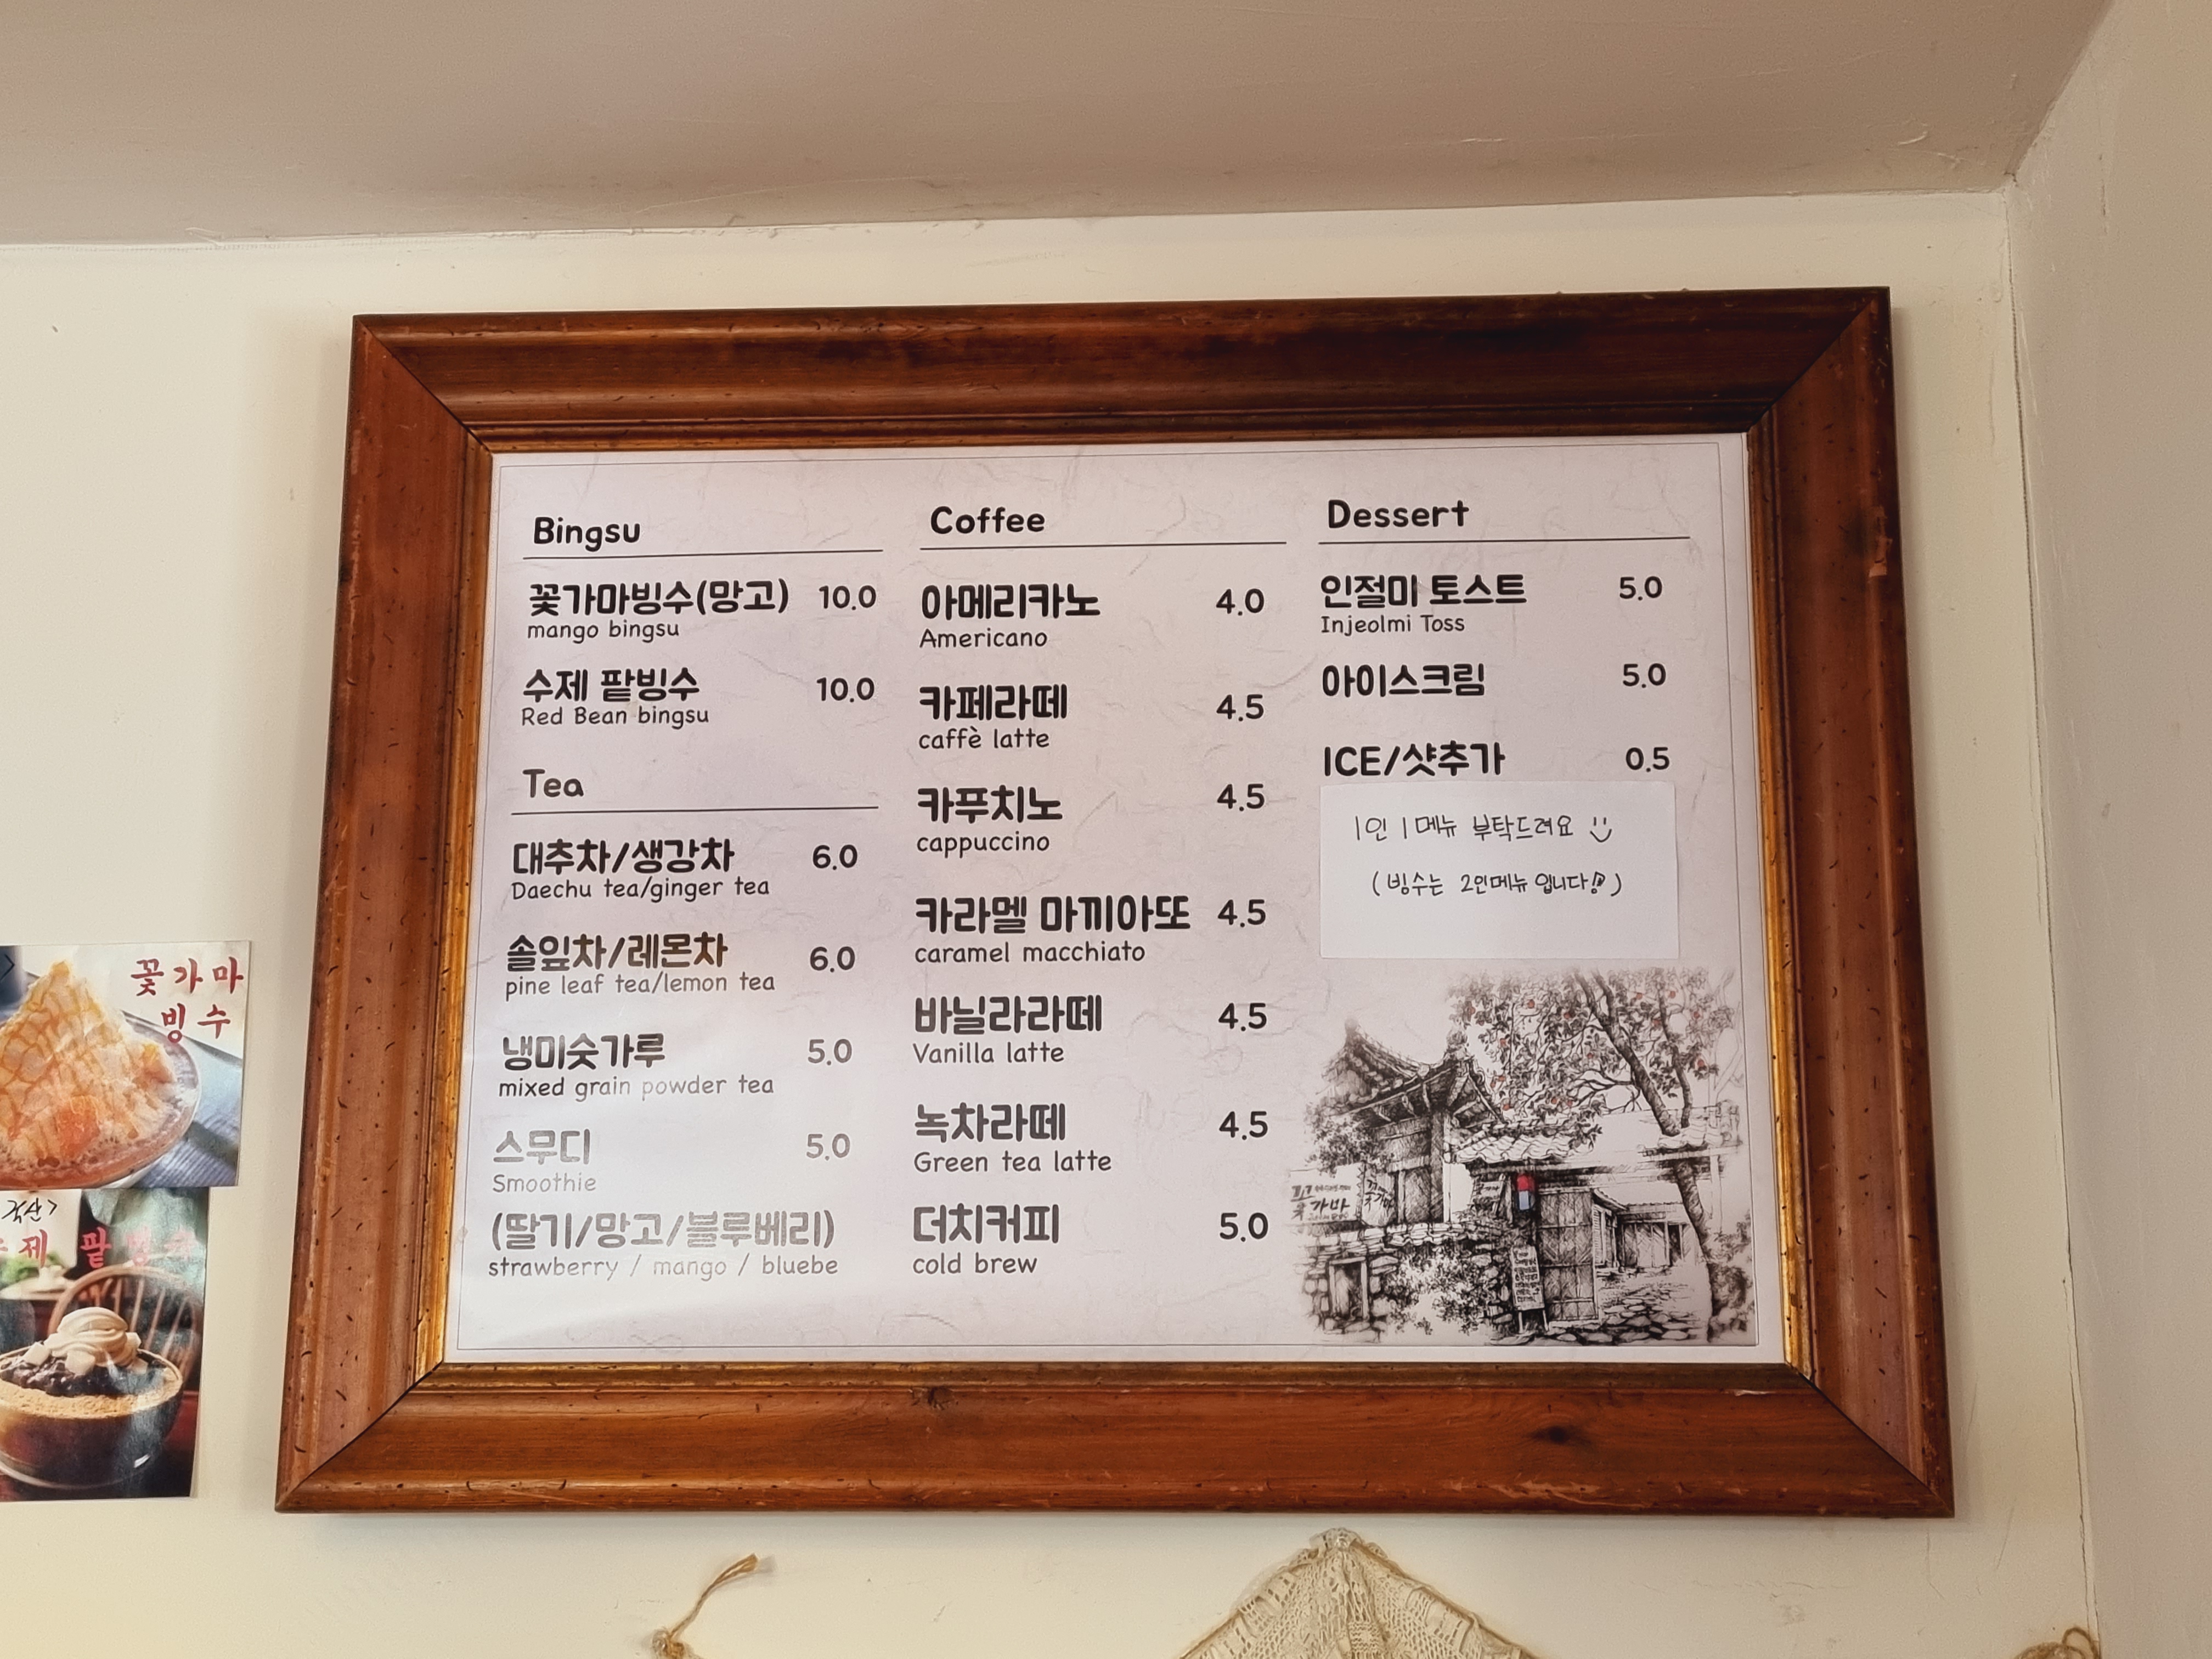 Bingsu
꽃가마빙수(망고) 10.0
mango bingsu
수제 팥빙수 10.0
Red Bean bingsu
Tea
대추차/생강차 6.0
Daechu tea/ginger tea
솔잎차/레몬차 6.0
pine leaf tea/lemon tea
냉미숫가루 5.0
mixed grain powder tea
스무디 5.0
Smoothie
(딸기/망고/블루베리)
strawberry / mango / bluebe
Coffee
아메리카노 4.0
Americano
카페라떼 4.5
caffè latte
카푸치노 4.5
cappuccino
카라멜 마끼아또 4.5
caramel macchiato
바닐라라떼 4.5
Vanilla latte
녹차라떼 4.5
Green tea latte
더치커피 5.0
cold brew
Dessert
인절미 토스트 5.0
Injeolmi Toss
아이스크림 5.0
ICE/샷추가 0.5
1인 1메뉴 부탁드려요
(빙수는 2인메뉴입니다!)
꽃가마
빙수
제 팥빙수